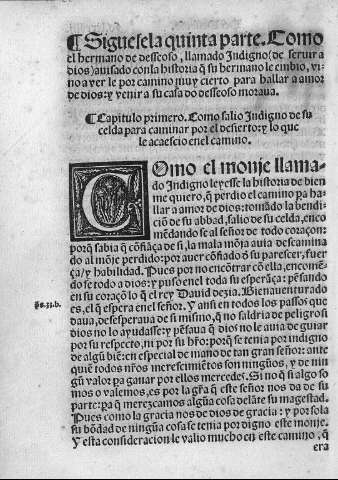 ¶ Siguese la quinta parte. Como
el hermano de desseoso, llamado Indigno (de seruir a
dios) auisado con la historia q̃ su hermano le embio, vi-
no a ver le por camino muy cierto para hallar a amor
de dios: y venir a su casa do desseoso moraua.
¶ Capitulo primero. Como salio Indigno de su
celda para caminar por el desierto: y lo que
le acaescio enel camino.
COmo el monje llama-
do Indigno leyesse la historia de bien
me quiero, q̃ perdio el camino p̱a ha-
llar a amor de dios: tomãdo la bendi-
ciõ de su abbad, salio de su celda, enco
mẽdando se al señor de todo coraçon:
porq̃ sabia q̃ cõfiãça de si, la mala mõja auia descamina
do al mõje perdido: por auer cõfiado ẽ su parescer, fuer
ça / y habilidad. Pues por no encõtrar cõ ella, encomẽ-
do se todo a dios: y puso enel toda su esperãça: pẽsando
en su coraçõ lo q̃ el rey Dauid dezia. Bienauenturado
ps.33.b.
es, el q̃ espera enel señor. Y ansi en todos los passos que
daua, desesperaua de si mismo, q̃ no saldria de peligro si
dios no lo ayudasse: y pẽsaua q̃ dios no le auia de guiar
por su respecto, ni por su hr̃o: porq̃ se tenia por indigno
de algũ biẽ: en especial de mano de tan gran señor: ante
quiẽ todos nr̃os merescimiẽtos son ningũos, y de nin
gũ valor p̱a ganar por ellos mercedes. Si no q̃ si algo so
mos o valemos, es por la gr̃a q̃ este señor nos da de su
parte: p̱a q̃ merezcamos algũa cosa delãte su magestad.
Pues como la gracia nos de dios de gracia: y por sola
su bõdad de ningũa cosa se tenia por digno este monje.
Y esta consideracion le valio mucho en este camino, q̃
era